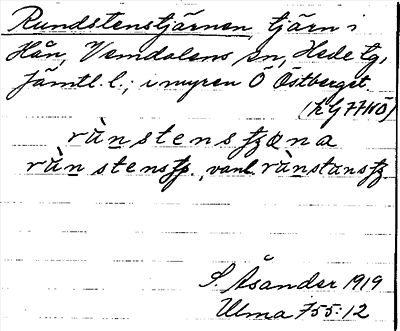 Rundstenstjärnen, tjärn i
Hån, Vemdalens sn, Hede tg,
Jämtl. l.; i myren Ö Östberget.
(k G 77 NÖ)
rùnstensʈʂɑna
rùn stensʈʂ., vanl. rùnstansʈʂ
S. Åsander 1919
Ulma 755:12